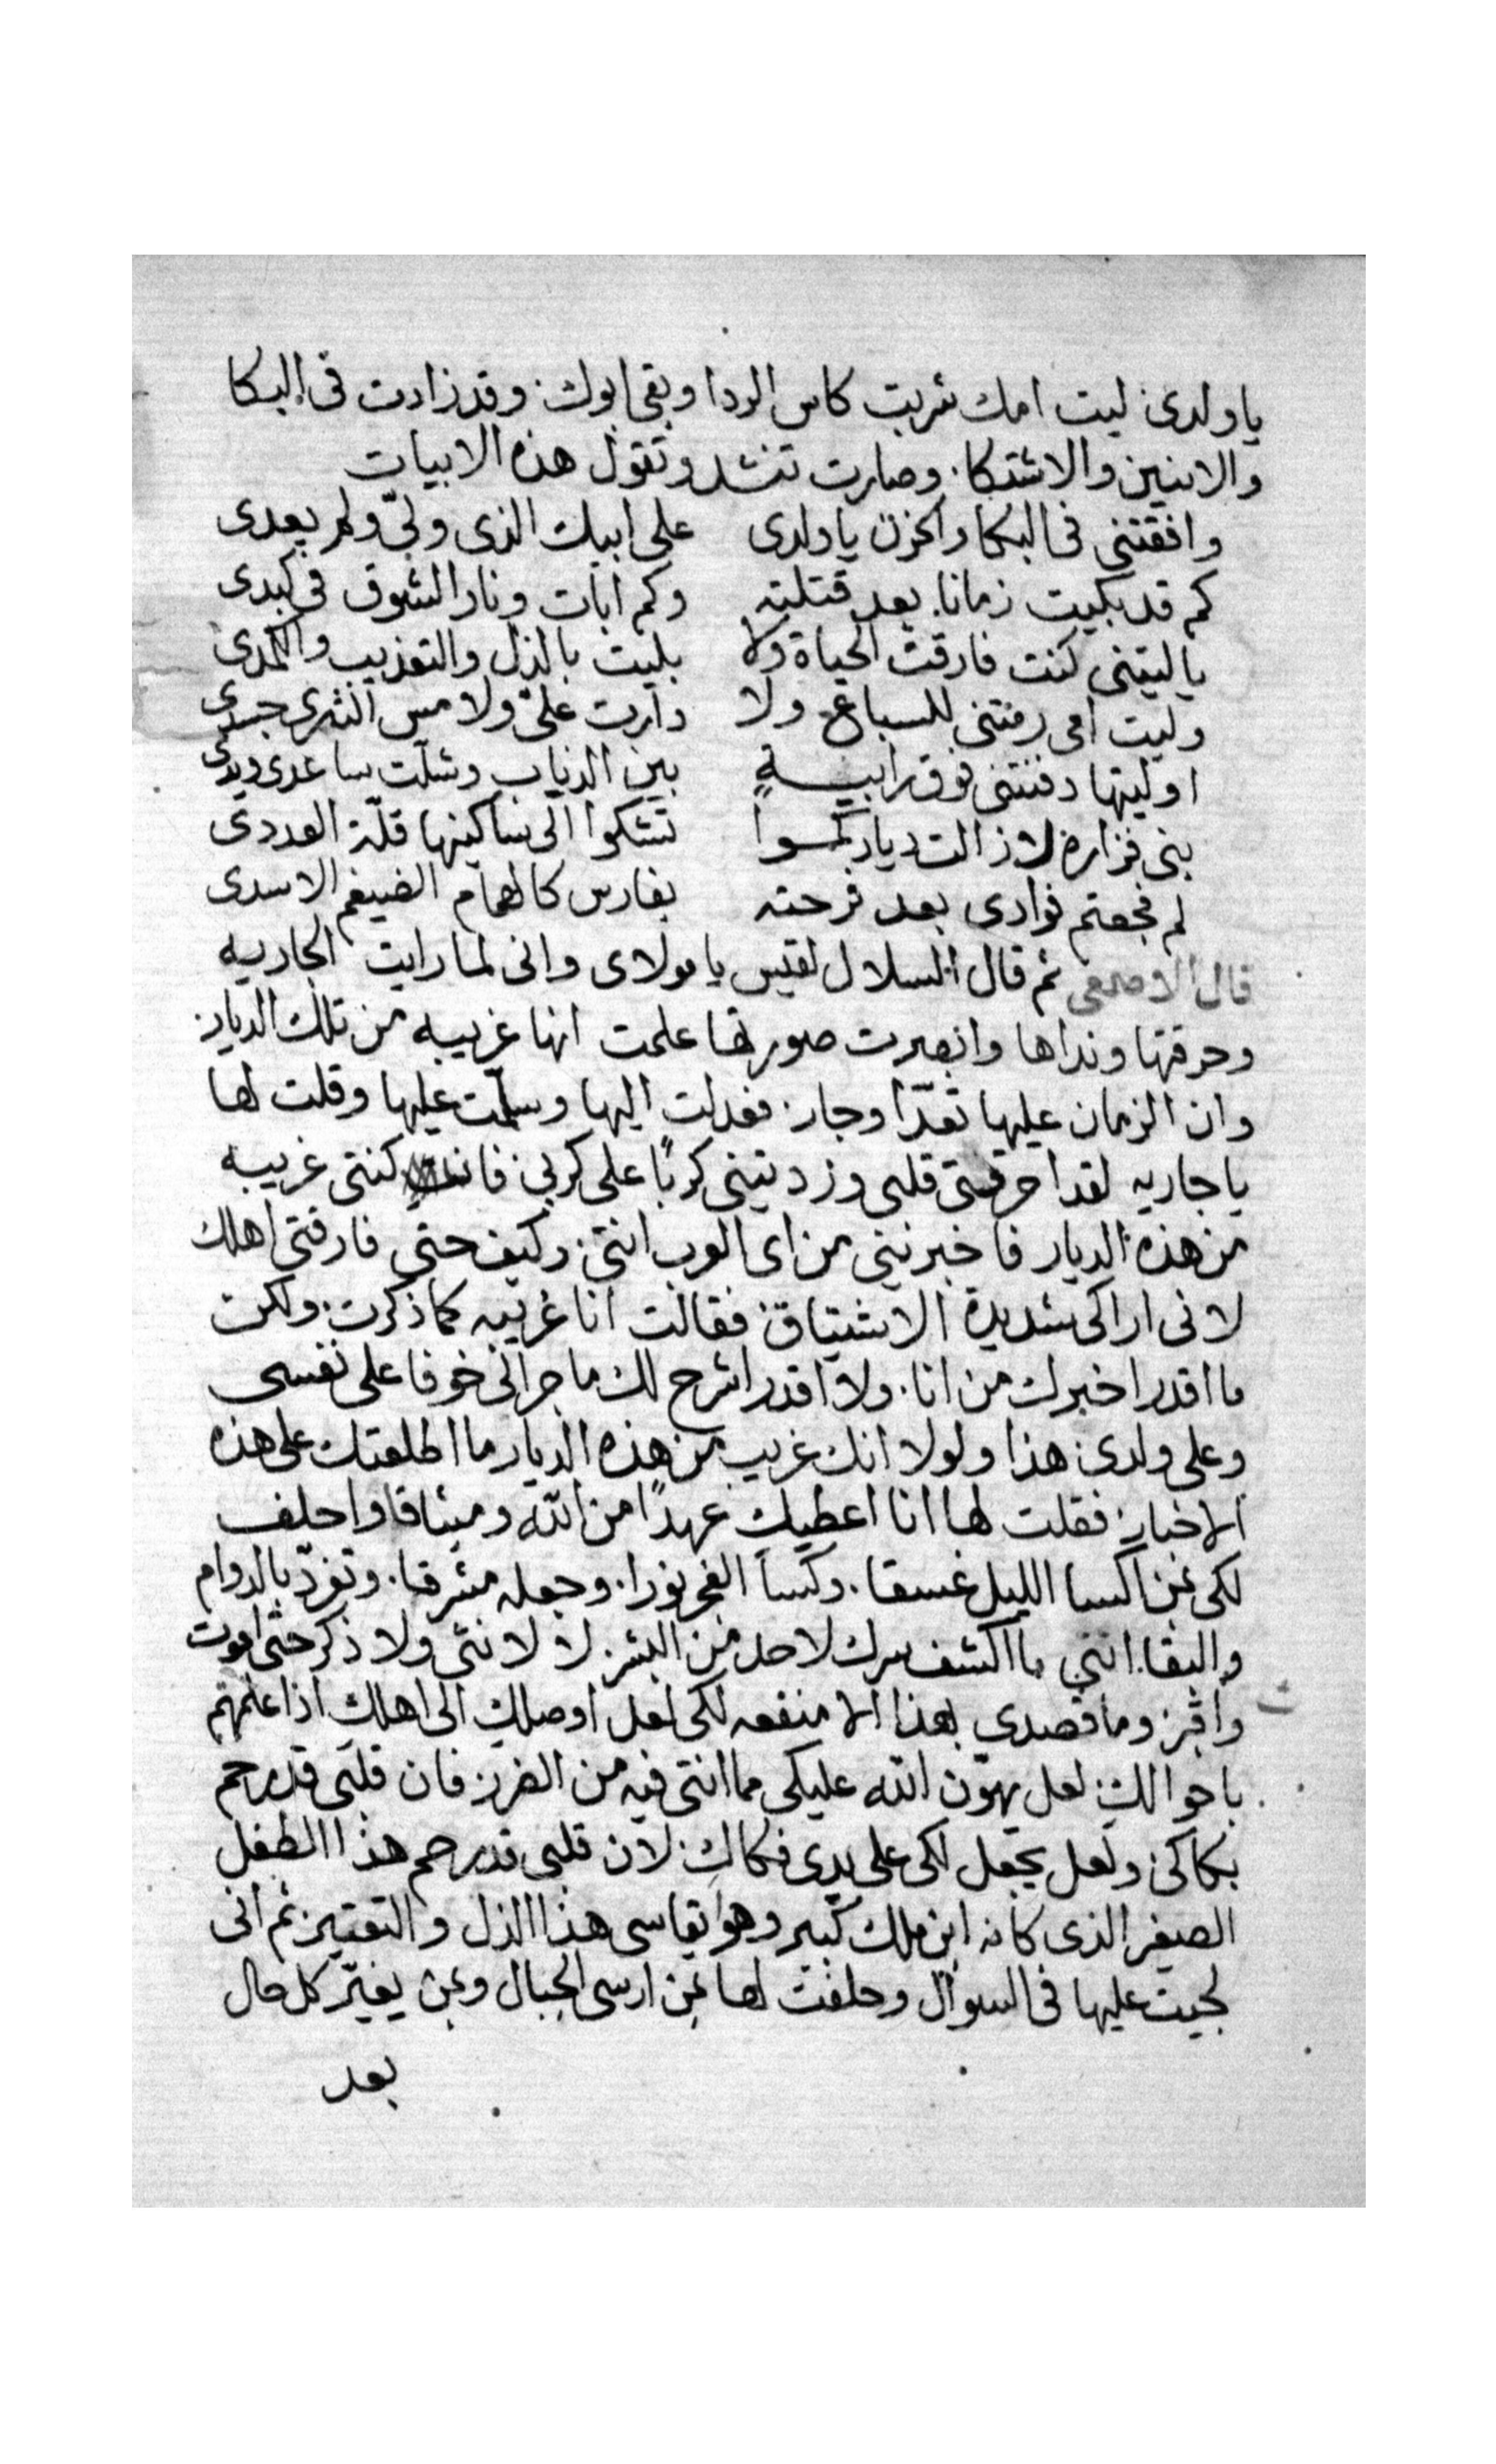 يا ولدى ليت امك شربت كاس الردا وبقى ابوك. وقد زادت فى البكا
والانين والاشتكا. وصارت تنشد وتقول هذه الابيات
وافقتنى فى البكا والحزن يا ولدى على ابيك الذى ولّى ولم يعدى
كم قد بكيت زمانا بعد قتلته وكم ابات ونار الشوق فى كبدى
يا ليتنى كنت فارقت الحياة ولا بليت بالذل والتعذيب والكمدى
وليت امى رمتنى للسباع ولا دارت علىّ ولا مس الثرى جسدى
او ليتها دفنتنى فوق رابيةٍ بين الدياب وشلّت ساعدى ويدى
بنى فزاره لا زالت دياركموا تشكوا الى ساكنيها قلّة العددى
لم فجعتم فوادى بعد فرحته بفارس كالهمام الضيغم الاسدى
قال الاصمعى ثم قال السلال لقيس يا مولاى وانى لما رايت الجاريه
وحرقتها ونداها وابصرت صورتها علمت انها غريبه من تلك الديار.
وان الزمان عليها تعدّا وجار. فعدلت اليها وسلمت عليها وقلت لها
يا جاريه لقد احرقتى قلبى وزدتينى كربًا على كربى. فانت كنتى غريبه
من هذه الديار فاخبرنينى من اى العرب انتى. وكيف حتى فارقتى اهلك
لانى اراكى شديدة الاشتياق. فقالت انا غريبه كما ذكرت. ولكن
ما اقدر اخبرك من انا. ولا اقدر اشرح لك ما جرالى خوفا على نفسى
وعلى ولدى هذا ولولا انك غريب من هذه الديار ما اطلعتك على هذه
الاخبار. فقلت لها انا اعطيكِ عهدًا من الله وميثاقا واحلف
لكى بمن اكسا الليل غسقا. وكسا الفجر نورا. وجعله مشرقا. وتفرّد بالدوام
والبقا. اننى ما اكشف سرك لاحد من البشر. لا لانثى ولا ذكر حتى اموت
واقبر. وما قصدى بهذا الا منفعه لكى لعل اوصلك الى اهلك اذا علمتهم
باحوالكِ. لعل يهوّن الله عليكى مما انتى فيه من الضرر. فان قلبى قد رحم
بكاكى. ولعل يجعل لكى على يدى فكاكِ. لان قلبى قد رحم هذا الطفل
الصغير الذى كانه ابن ملك كبير وهو يقاسى هذا الذل والتعتير. ثم انى
لجيت عليها فى السوال وحلفت لها بمن ارسى الجبال وبمن يغيّر كل حال
بعد